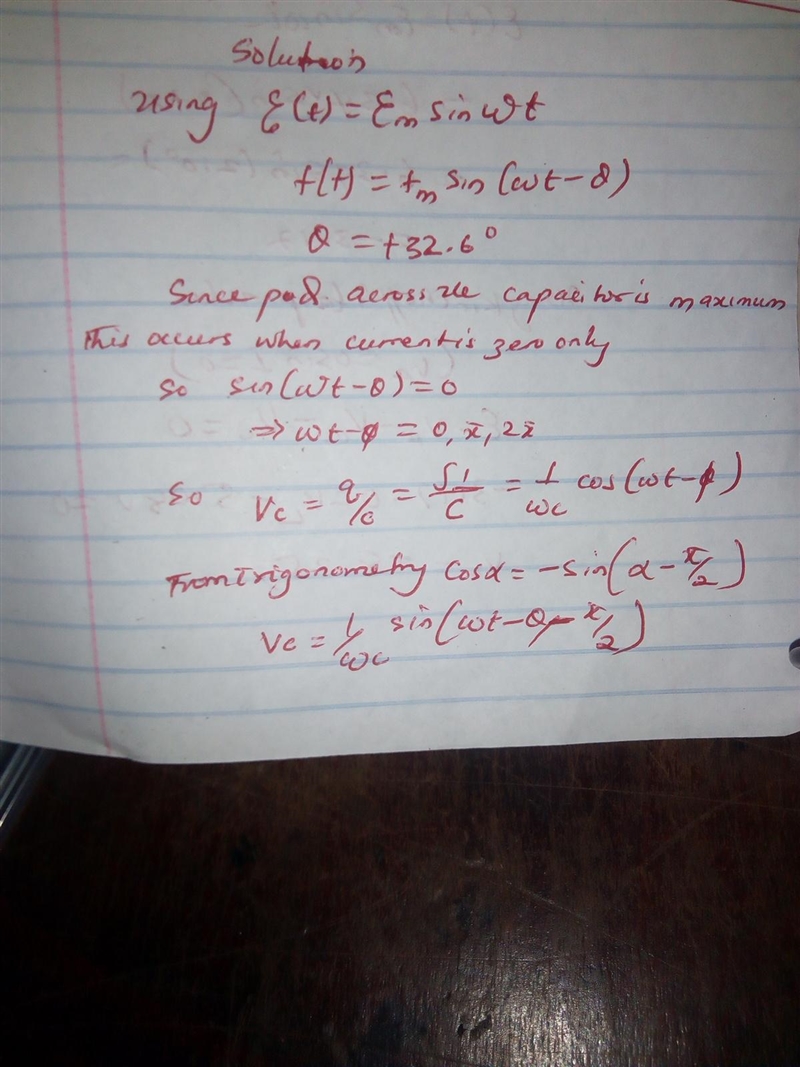 Solution
using ε(t) = εm sin ωt
I(t) = Im sin (ωt − θ)
θ = +32.6°
Since p.d. across the capacitor is maximum
this occurs when current is zero only
so sin(ωt − θ) = 0
⇒ ωt − φ = 0, π, 2π
so Vc = q/c = ∫I/C = 1/ωc cos(ωt − φ)
From Trigonometry cosα = −sin(α − π/2)
Vc = 1/ωc sin(ωt − θ − π/2)